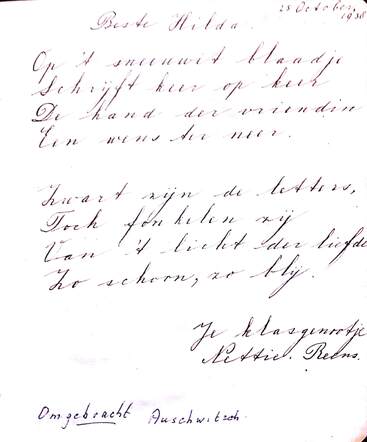 25 October
1938
Beste Hilda.
Op 't sneeuwit blaadje
Schrijft keer op keer
De hand der vriendin
Een wens ter neer.
Zwart zijn de letters,
Toch fonkelen zij
Van 't licht der liefde
Zo schoon, zo blij.
Je klasgenootje
Nettie. Reens.
Omgebracht Auschwitsch.